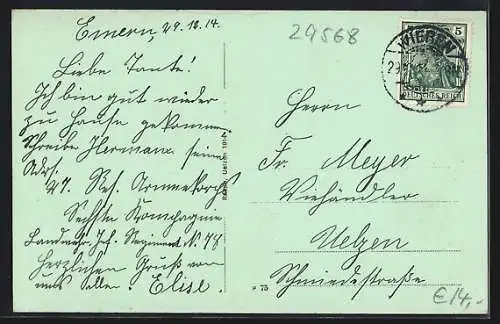 Emern, 29.10.14.
Liebe Tante!
Ich bin gut wieder
zu Hause gekommen
Schreibe Hermann seine
Adr.
27. Res. Armeekorps
Sechste Kompagnie
Landwehr. Inf. Regiment N. 78
Herzlichen Gruß von
uns allen. Elise.
29568
WIEREN
5
DEUTSCHES REICH
Herrn
Fr. Meyer
Viehändler
Uelzen
Schmiedestraße
* 75
€14,-